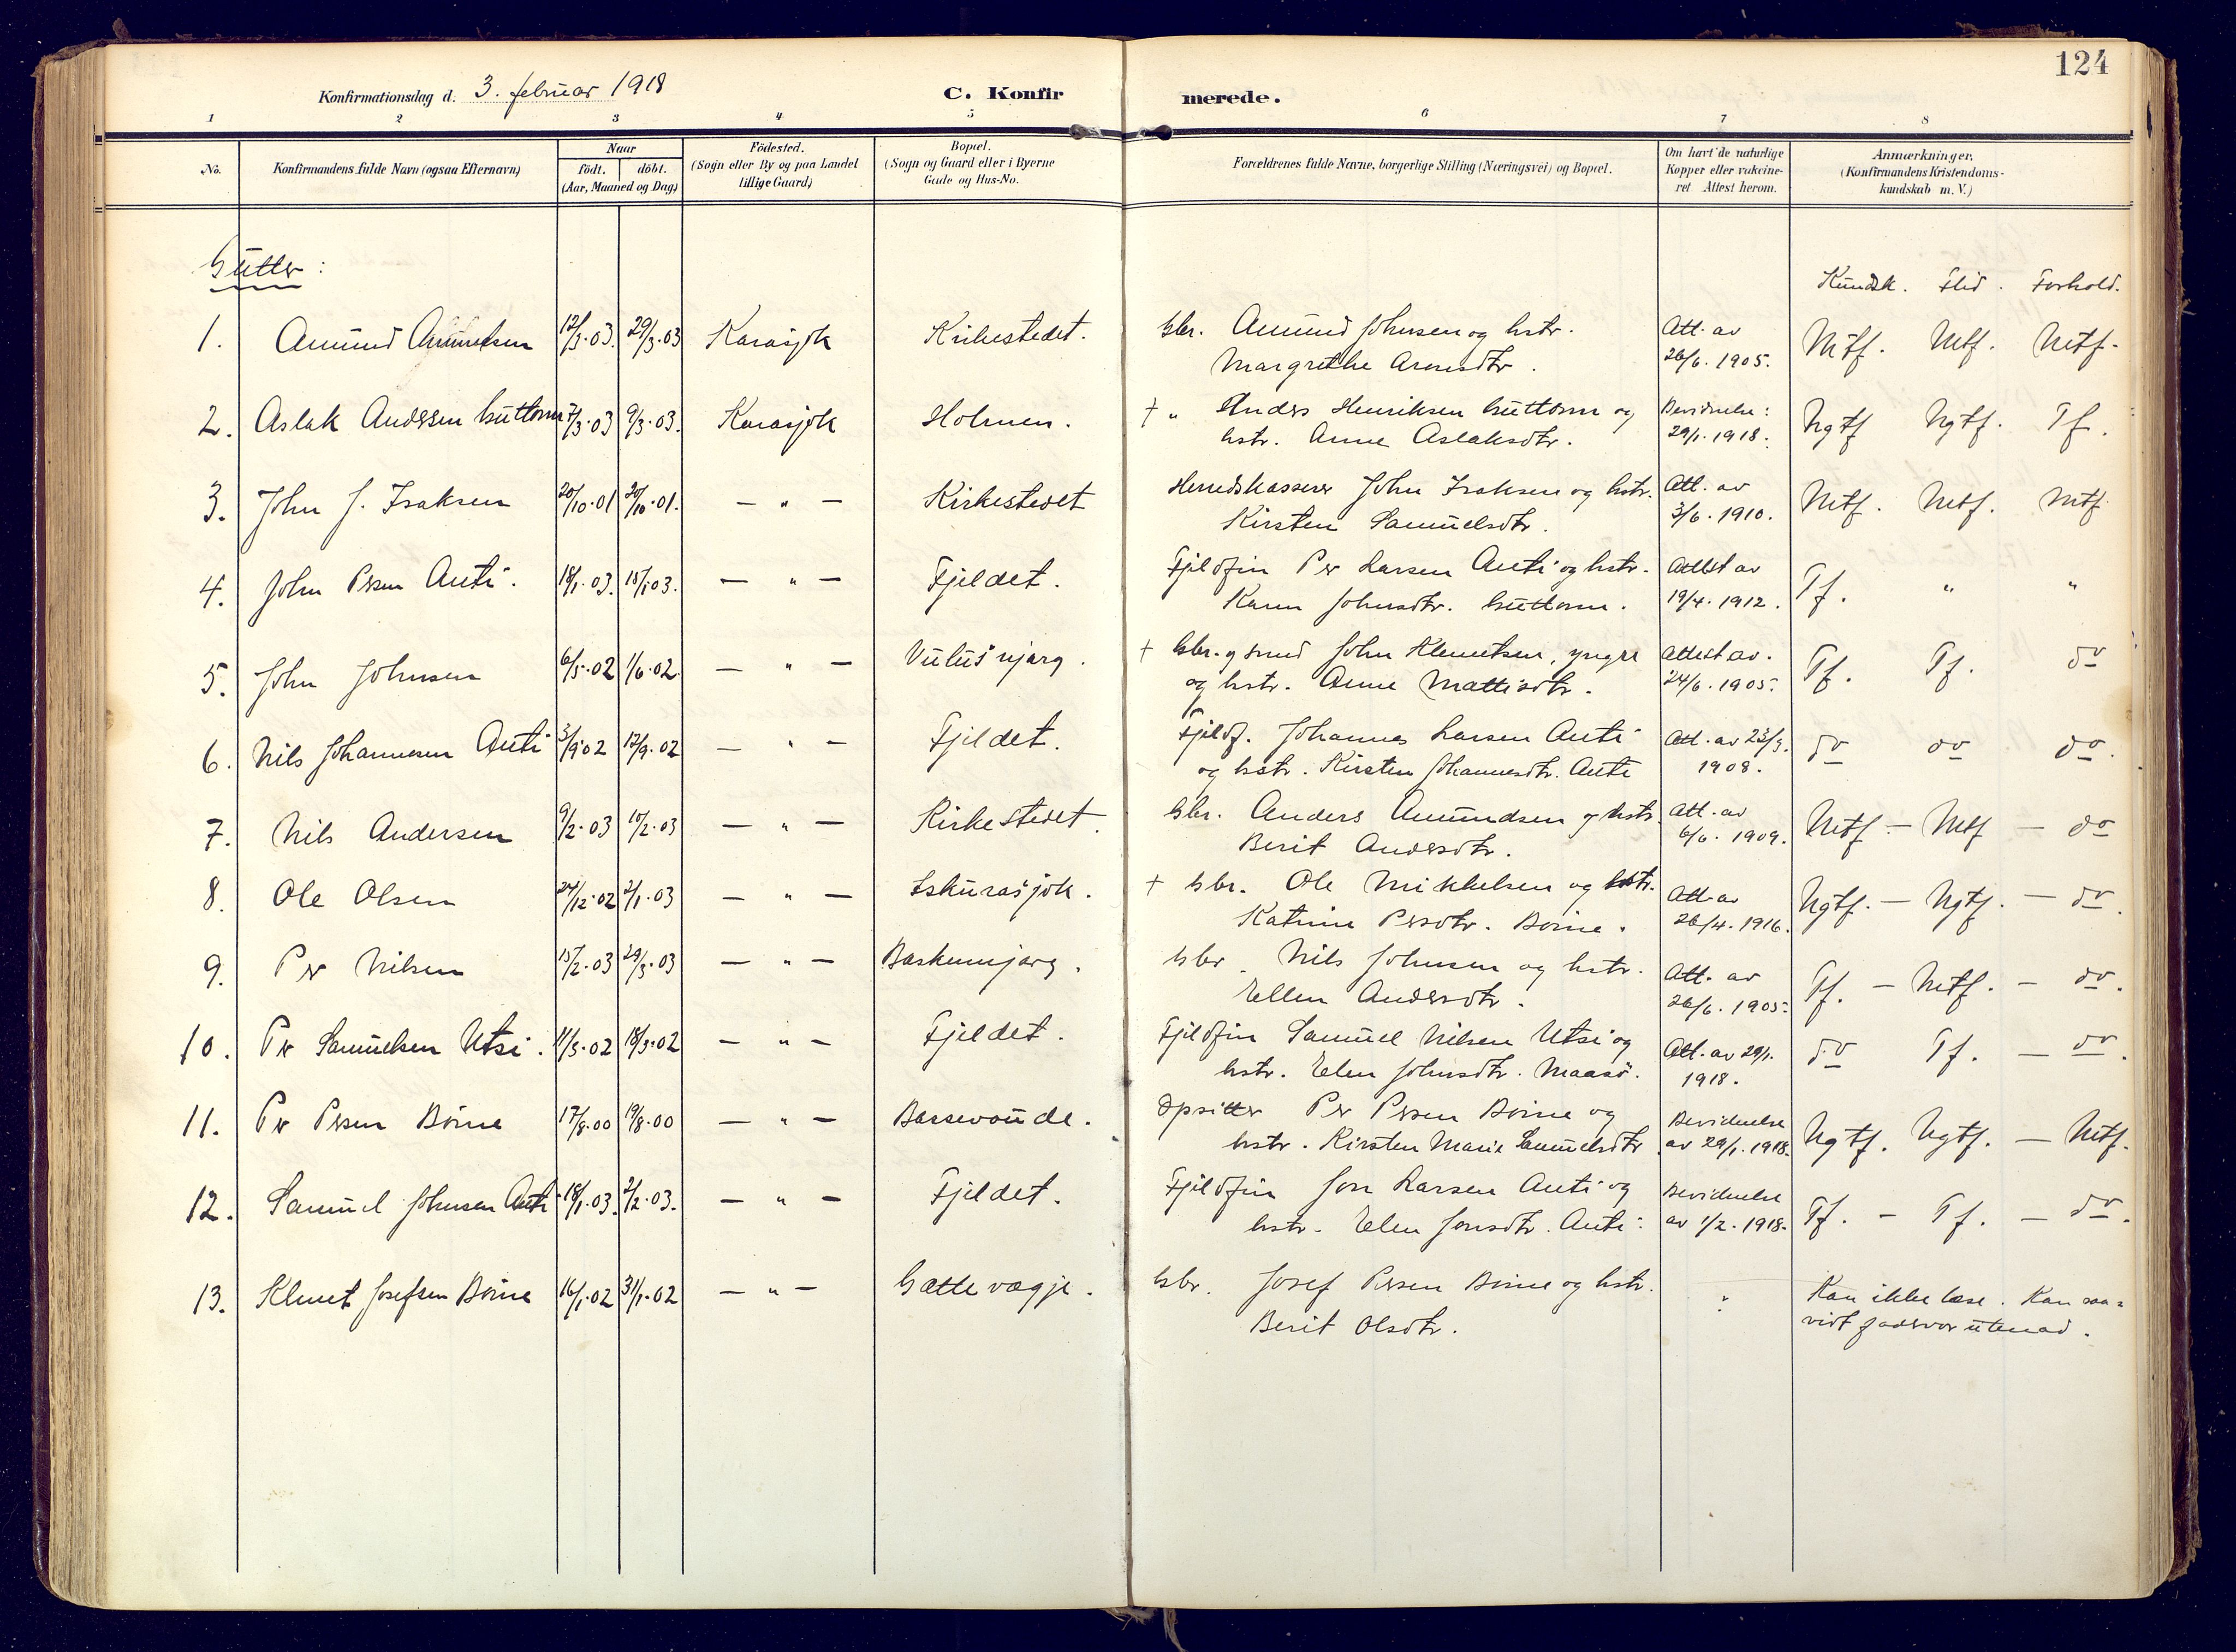 124
Konfirmationsdag d. 3. februar 1918 C. Konfirmerede.
1 2 3 4 5 6 7 8
No. Konfirmandens fulde Navn (ogsaa Efternavn) Naar födt. döbt. (Aar, Maaned og Dag) Födested. (Sogn eller By og paa Landet tillige Gaard) Bopæl. (Sogn og Gaard eller i Byerne Gade og Hus-No. Forældrenes fulde Navne, borgerlige Stilling (Næringsvei) og Bopæl. Om havt de naturlige Kopper eller vakcineret Attest herom. Anmærkninger, (Konfirmandens Kristendomskundskab m. V.)
Gutter:
Kundsk. Flid. Forhold.
1. Amund Amundsen 12/3.03. 29/3.03 Karasjok Kirkestedet. Gbr. Amund Johnsen og hstr. Att. av Mtf. Mtf. Mtf.
Margrethe Aronsdtr. 26/6. 1905.
2. Aslak Andersen Guttorm 7/3.03 9/3.03. Karasjok Holmen. † " Anders Henriksen Guttorm og Bevidnelse: Ngtf Ngtf. Tf.
hstr. Anne Aslaksdtr. 29/1. 1918.
3. John J. Isaksen 20/10.01 20/10.01. — " — Kirkestedet Herredskasserer John Isaksen og hstr. Att. av Mtf. Mtf. Mtf.
Kirsten Samuelsdtr. 3/6. 1910.
4. John Persen Anti. 18/1.03. 18/1.03. — " — Fjeldet. Fjeldfin Per Larsen Anti og hstr. Attest av Tf. " "
Karen Johnsdtr. Guttorm. 19/4. 1912.
5. John Johnsen 6/5.02 1/6.02. — " — Vulusnjarg. † Gbr. og smed John Klemetsen, yngre Attest av. Tf. Tf. do
og hstr. Anne Mattisdtr. 24/6. 1905.
6. Nils Johannesen Anti 3/9.02 12/9.02 — " — Fjeldet. Fjeldf. Johannes Larsen Anti Att. av 23/3. do do do.
og hstr. Kirsten Johannesdtr. Anti 1908.
7. Nils Andersen 9/2.03 10/2.03 — " — Kirkestedet. Gbr. Anders Amundsen og hstr. Att. av Mtf. — Mtf — do
Berit Andersdtr. 6/6. 1909.
8. Ole Olsen 24/12.02 2/1.03 — " — Iskurasjok. † Gbr. Ole Mikkelsen og hstr. Att av Ngtf. — Ngtf. — do.
Katrine Persdtr. Boine. 26/4. 1916.
9. Per Nilsen 15/2.03 29/3.03 — " — Baskennjarg. Gbr. Nils Johnsen og hstr. Att. av Tf. — Mtf. — do.
Ellen Andersdtr. 26/6. 1905.
10. Per Samuelsen Utsi. 11/3.02 18/3.02 — " — Fjeldet. Fjeldfin Samuel Nilsen Utsi og Att. av 29/1. do Tf. — do.
hstr. Elen Johnsdtr. Maasö. 1918.
11. Per Persen Boine 17/8.00 19/8.00 — " — Bassevoude. Opsitter Per Persen Boine og Bevidnelse Ngtf. Ngtf. — Mtf.
hstr. Kirsten Marie Samuelsdtr. av 29/1. 1918.
12. Samuel Johnsen Anti 18/1.03. 2/2.03. — " — Fjeldet. Fjeldfin Jon Larsen Anti og Bevidnelse Tf. — Tf. — do.
hstr. Elen Jonsdtr. Anti. av 1/2. 1918.
13. Klemet Josefsen Boine 16/1.02 31/1.02 — " — Gættevægje. Gbr. Josef Persen Boine og hstr. " Kan ikke læse. Kan saa-
Berit Olsdtr. vidt fadervor utenad.